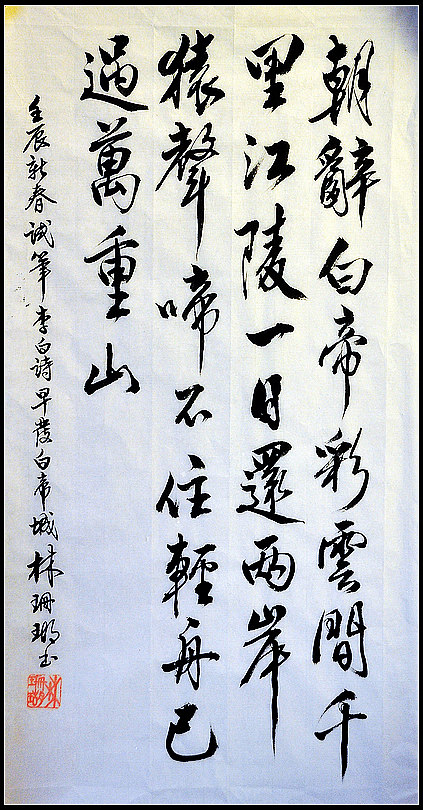 朝辭白帝彩雲間千
里江陵一日還兩岸
猿聲啼不住輕舟已
過萬重山
壬辰新春試筆 李白詩早發白帝城 林珊書